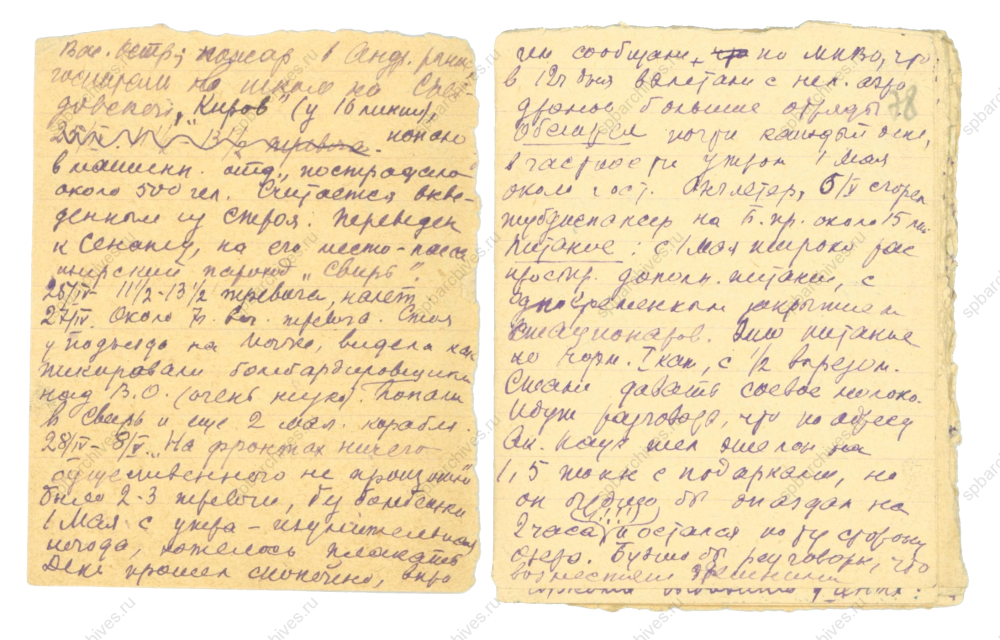 Вас. Остр; пожар в Анд. рын
госпитале на школе на Съез
довской, "Киров" (у 16 линии),
25/IV. тревога. попало
в машинн. отд., пострадало
около 500 чел. Считается выве-
денным из строя. Переведен
к Сенату, на его место - пасса
жирский пароход "Свирь"
25/IV - 11½-13½ тревога, налет
27/IV. Около 7 ч. веч. тревога. Стоя
у подъезда на Мойке, видела как
пикировали бомбардировщики
над В.О. (очень низко). Попали
в Свирь и еще 2 мал. корабля.
28/IV - 8/V. "На фронтах ничего
существенного не произошло"
Было 2-3 тревоги, без бомбежки
1 Мая с утра - изумительная
погода, хотелось плакать
День прошел спокойно,
чем сообщали, что по МПВО, что
в 12 ч дня вылетали с нем. аэро
дромов большие отряды
Обстрел почти каждый день,
в частности утром 1 мая
около гост. Англетер, 6/V сгорел
тубдиспансер на
Питание: с 1 мая широко рас
простр. дополн. питание, с
одновременным закрытием
стационаров. Это питание
по норм. I кат, с ½ вырезом.
Стали давать соевое молоко.
Идут разговоры, что по адресу
Ак. Наук шел эшелон на
1,5 тонн с подарками, но
он будто бы опоздал на
2 часа и остался по ту сторону
озера. Будто бы разговоры, что